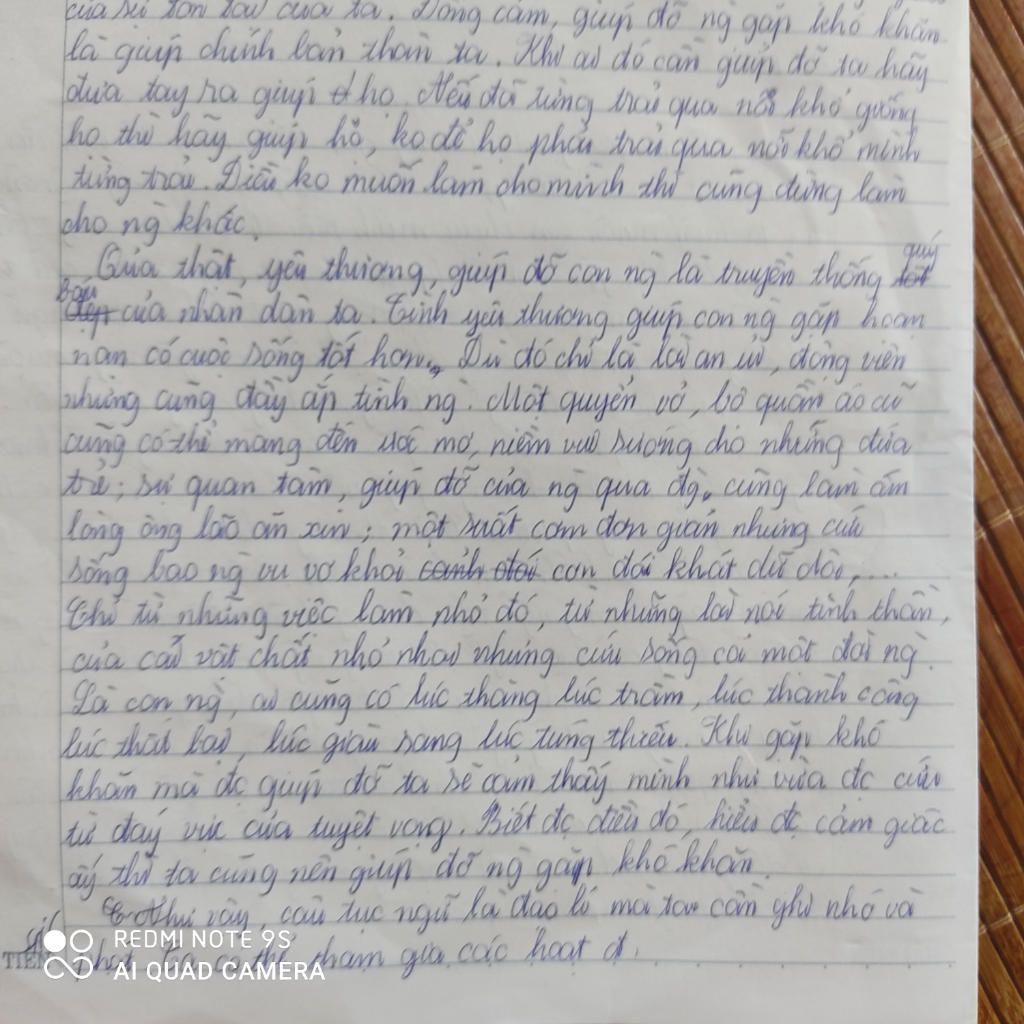 của sự tồn tại của ta. Đồng cảm, giúp đỡ ng gặp khó khăn
là giúp chính bản thân ta. Khi ai đó cần giúp đỡ ta hãy
đưa tay ra giúp họ. Nếu đã từng trải qua nỗi khổ giống
họ thì hãy giúp họ, ko để họ phải trải qua nỗi khổ mình
từng trải. Điều ko muốn làm cho mình thì cũng đừng làm
cho ng khác.
Quả thật, yêu thương, giúp đỡ con ng là truyền thống quý
báu của nhân dân ta. Tình yêu thương giúp con ng gặp hoạn
nạn có cuộc sống tốt hơn. Dù đó chỉ là lời an ủi, động viên
nhưng cũng đầy ắp tình ng. Một quyển vở, bộ quần áo cũ
cũng có thể mang đến ước mơ, niềm vui sướng cho những đứa
trẻ; sự quan tâm, giúp đỡ của ng qua đg cũng làm ấm
lòng ông lão ăn xin; một suất cơm đơn giản nhưng cứu
sống bao ng vu vơ khỏi cơn đói khát dữ dội,....
Chỉ từ những việc làm nhỏ đó, từ những lời nói tinh thần,
của cải vật chất nhỏ nhoi nhưng cứu sống cả một đời ng.
Là con ng, ai cũng có lúc thăng lúc trầm, lúc thành công
lúc thất bại, lúc giàu sang lúc túng thiếu. Khi gặp khó
khăn mà đc giúp đỡ ta sẽ cảm thấy mình như vừa đc cứu
từ đáy vực của tuyệt vọng. Biết đc điều đó, hiểu đc cảm giác
ấy thì ta cũng nên giúp đỡ ng gặp khó khăn.
Như vậy, câu tục ngữ là đạo lí mà ta cần ghi nhớ và
phát Ta có thể tham gia các hoạt đ.
TIẾN
REDMI NOTE 9S
AI QUAD CAMERA